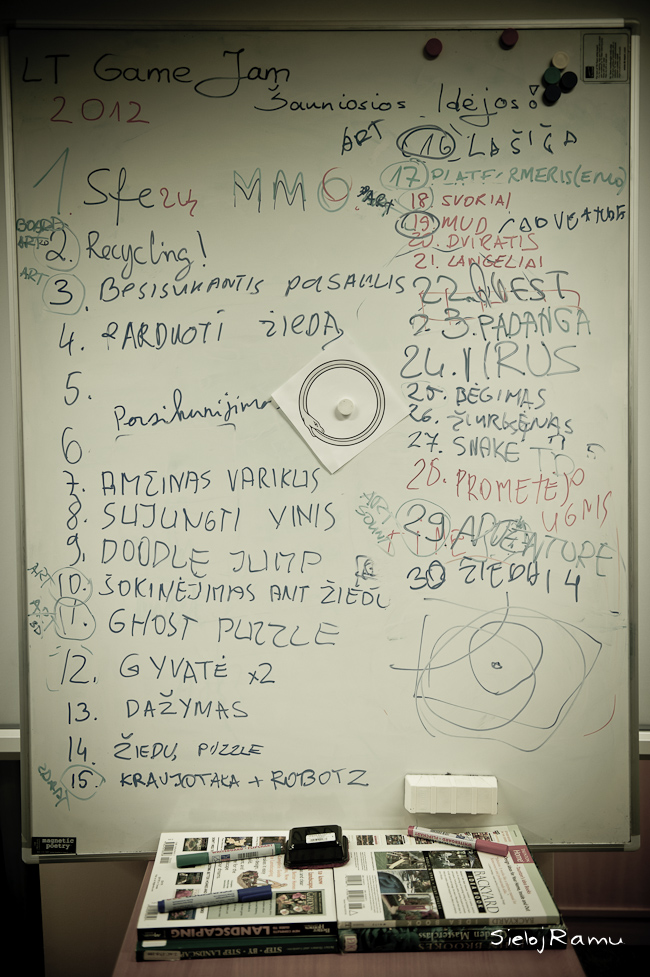 LT Game Jam
2012
Šauniosios Idėjos!
1. Sferų MMO
BOARD
ART
2. Recycling!
ART
3. BESISUKANTIS PASAULIS
4. PARDUOTI ŽIEDĄ
5.
6
7. AMŽINAS VARIKLIS
8. SUJUNGTI VINIS
9. DOODLE JUMP
ART
10. ŠOKINĖJIMAS ANT ŽIEDŲ
3D
11. GHOST PUZZLE
12. GYVATĖ x2
13. DAŽYMAS
14. ŽIEDŲ PUZZLE
15. KRAUJOTAKA + ROBOTZ
ART
16. LAŠIŠA
17. PLATFORMERIS(EMO)
ART
18. SVOKIAI
19. MUD / ADVENTURE
20. DVIRATIS
21. LANGELIAI
22. QUEST
23. PADANGA
24. VIRUS
25. BĖGIMAS
26. ŽIURKĖNAS
27. SNAKE TD?
28. PROMETĖJO
UGNIS
29. ADVENTURE
30 ŽIEDAI 4
magnetic
poetry
BACKYARD
LANDSCAPING
STEP - BY - STEP LANDSCAP
SielojRamu